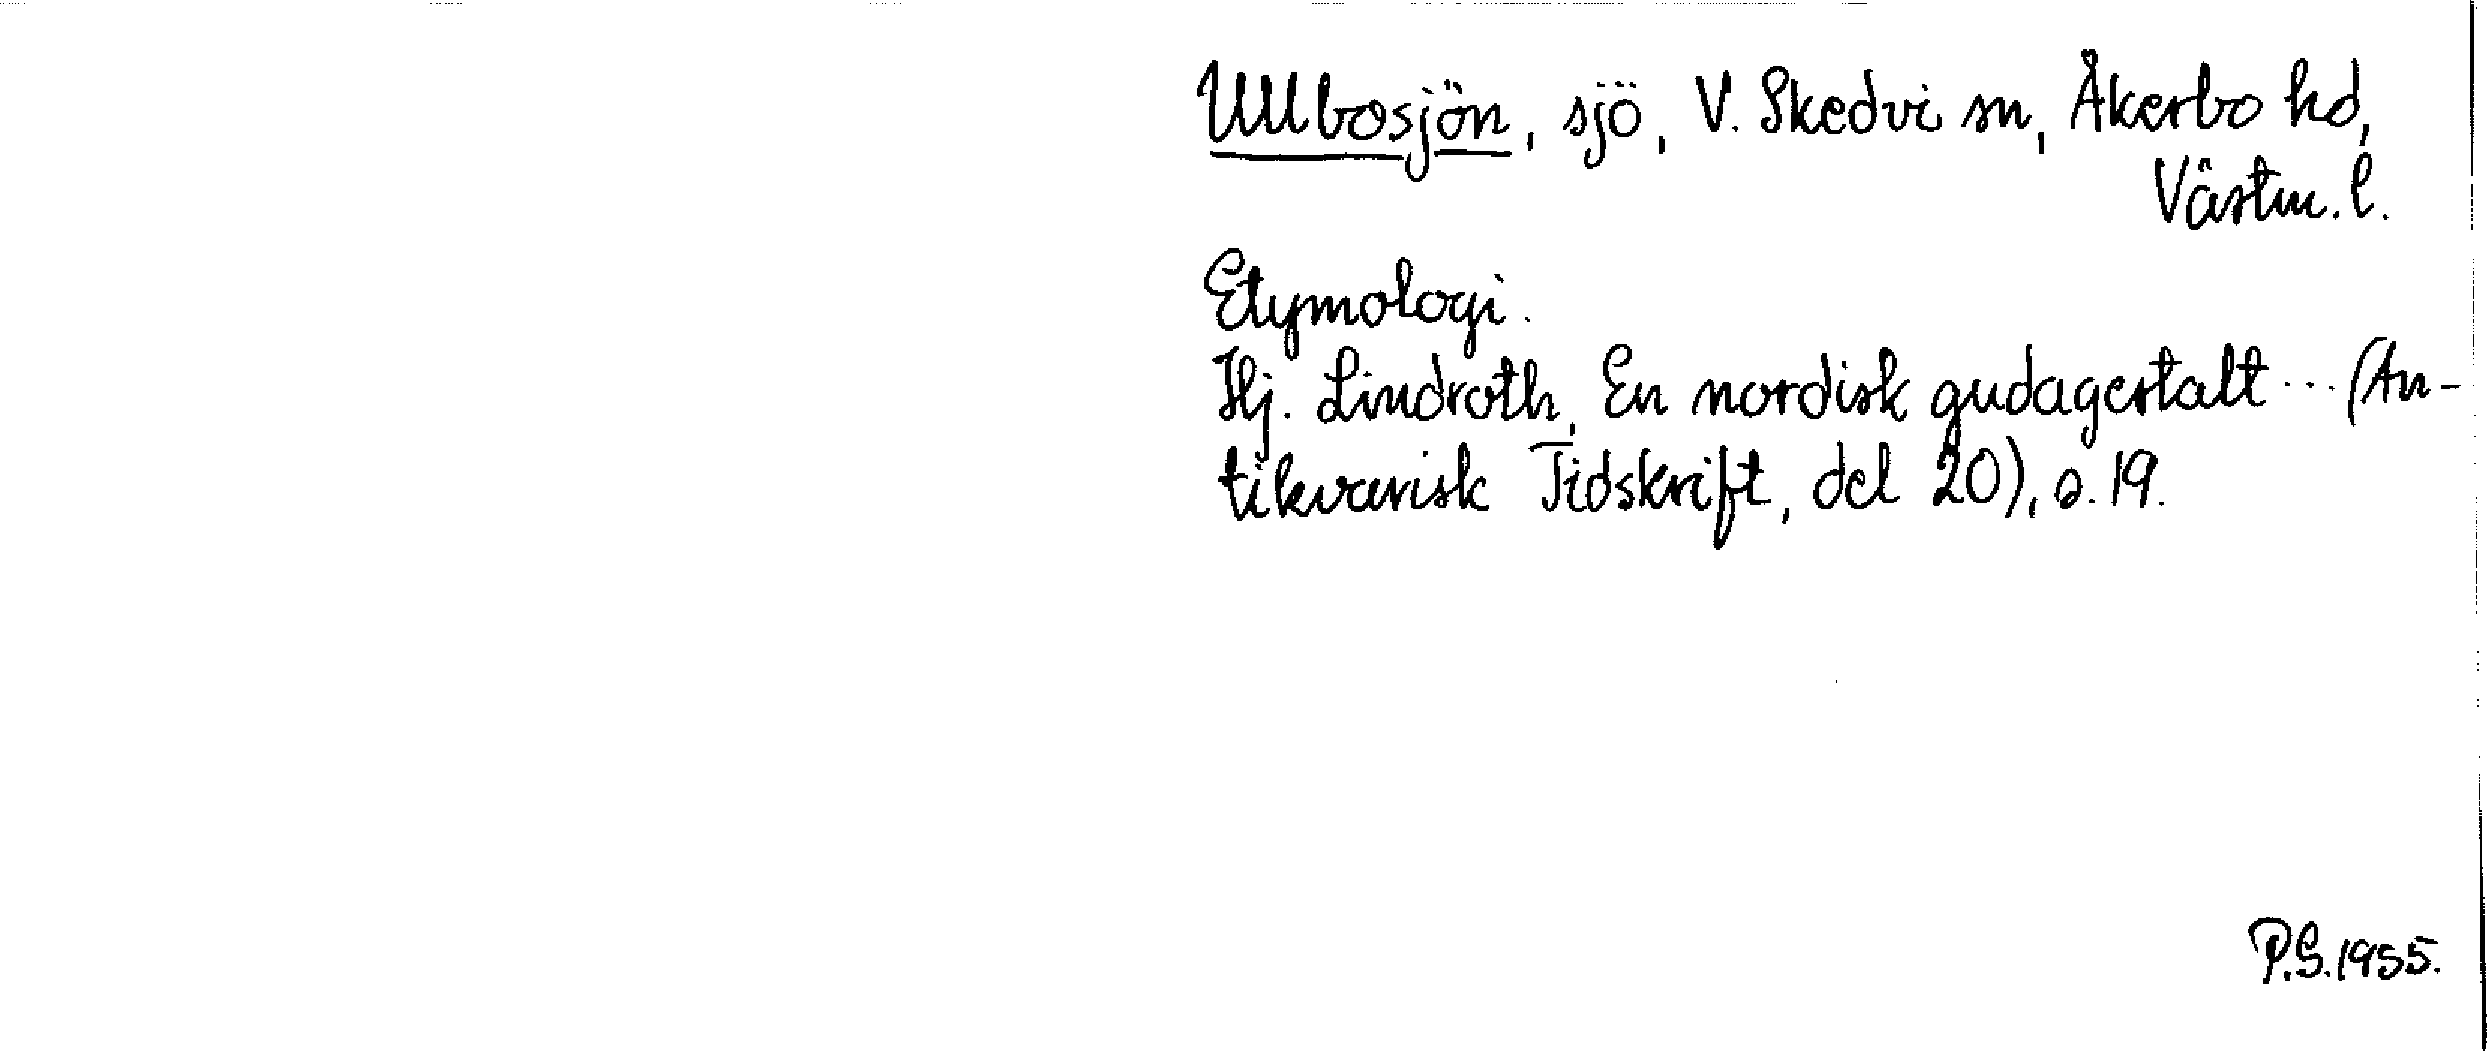 Ullbosjön, sjö, V. Skedvi sn, Åkerbo hd,
Västm. l.
Etymologi.
Hj. Lindroth, En nordisk gudagestalt ... (An-
tikvarisk Tidskrift, del 20), s. 19.
P.S. 1955.